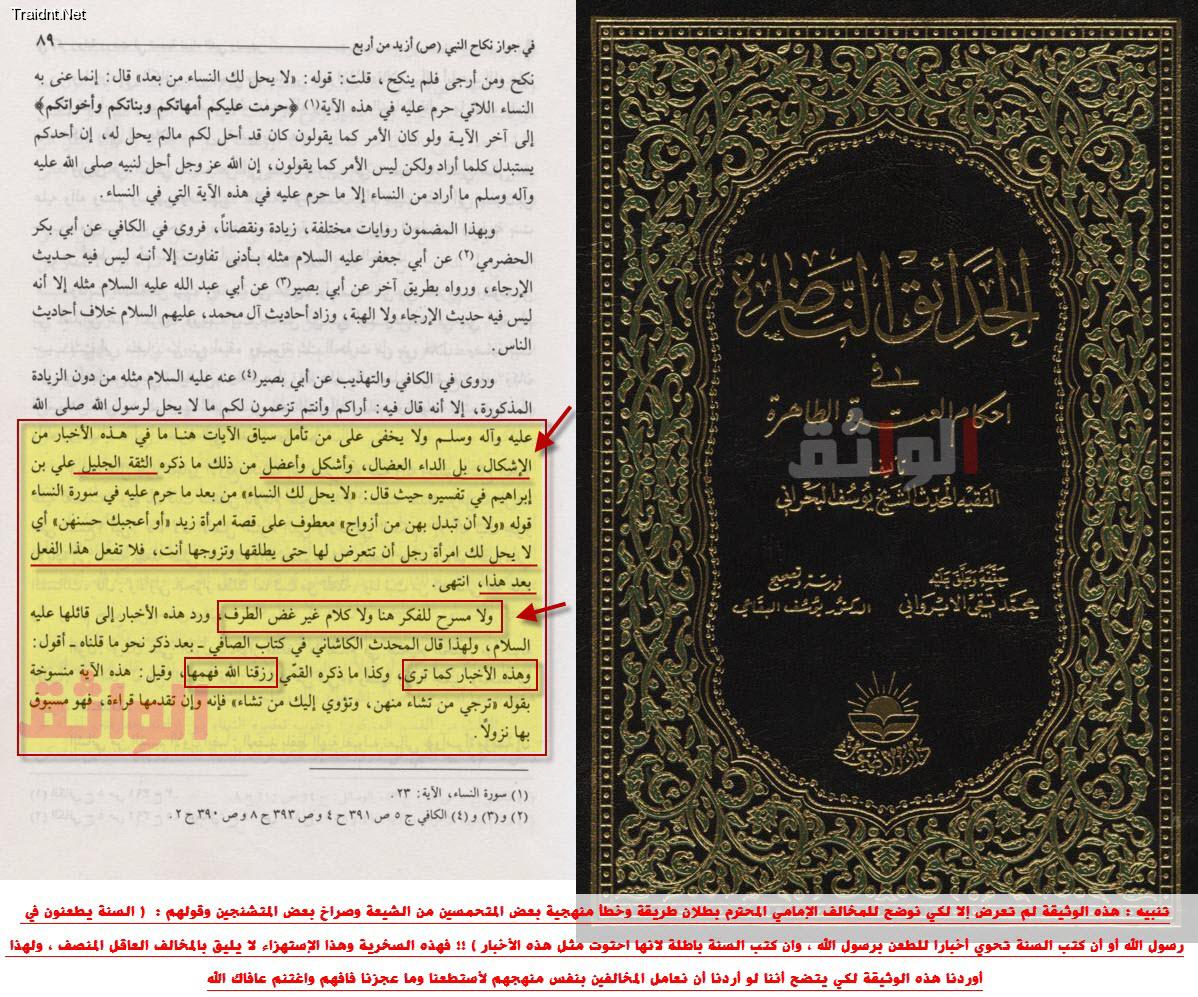 Traidnt.Net
في جواز نكاح النبي (ص) أزيد من أربع ٨٩
نكح ومن أرجى فلم ينكح، قلت: قوله: «لا يحل لك النساء من بعد» قال: إنما عنى به
النساء اللاتي حرم عليه في هذه الآية(١) ﴿حرمت عليكم أمهاتكم وبناتكم وأخواتكم﴾
إلى آخر الآية ولو كان الأمر كما يقولون كان قد أحل لكم مالم يحل له، إن أحدكم
يستبدل كلما أراد ولكن ليس الأمر كما يقولون، إن الله عز وجل أحل لنبيه صلى الله عليه
وآله وسلم ما أراد من النساء إلا ما حرم عليه في هذه الآية التي في النساء.
وبهذا المضمون روايات مختلفة، زيادة ونقصاناً، فروى في الكافي عن أبي بكر
الحضرمي(٢) عن أبي جعفر عليه السلام مثله بأدنى تفاوت إلا أنه ليس فيه حديث
الإرجاء، ورواه بطريق آخر عن أبي بصير(٣) عن أبي عبد الله عليه السلام مثله إلا أنه
ليس فيه حديث الإرجاء ولا الهبة، وزاد أحاديث آل محمد، عليهم السلام خلاف أحاديث
الناس.
وروى في الكافي والتهذيب عن أبي بصير(٤) عنه عليه السلام مثله من دون الزيادة
المذكورة، إلا أنه قال فيه: أراكم وأنتم تزعمون لكم ما لا يحل لرسول الله صلى الله
عليه وآله وسلم ولا يخفى على من تأمل سياق الآيات هنا ما في هذه الأخبار من
الإشكال، بل الداء العضال، وأشكل وأعضل من ذلك ما ذكره الثقة الجليل علي بن
إبراهيم في تفسيره حيث قال: «لا يحل لك النساء» من بعد ما حرم عليه في سورة النساء
قوله «ولا أن تبدل بهن من أزواج» معطوف على قصة امرأة زيد «أو أعجبك حسنهن» أي
لا يحل لك امرأة رجل أن تتعرض لها حتى يطلقها وتزوجها أنت، فلا تفعل هذا الفعل
بعد هذا، انتهى.
ولا مسرح للفكر هنا ولا كلام غير غض الطرف، ورد هذه الأخبار إلى قائلها عليه
السلام، ولهذا قال المحدث الكاشاني في كتاب الصافي ـ بعد ذكر نحو ما قلناه ـ أقول:
وهذه الأخبار كما ترى، وكذا ما ذكره القمّي رزقنا الله فهمها، وقيل: هذه الآية منسوخة
بقوله «ترجي من تشاء منهن، وتؤوي إليك من تشاء» فإنه وإن تقدمها قراءة، فهو مسبوق
بها نزولاً.
الواثق
(١) سورة النساء، الآية: ٢٣.
(٢) و(٣) و(٤) الكافي ج ٥ ص ٣٩١ ح ٤ وص ٣٩٣ ح ٨ وص ٣٩٠ ح ٢.
الحدائق الناضرة
في
احكام العترة الطاهرة
الواثق
تأليف
الفقيه المحدث الشيخ يوسف البحراني
حققه وعلق عليه
محمد تقي الايرواني
فهرسة وتصحيح
الدكتور يوسف البقاعي
دار الأضواء
تنبيه : هذه الوثيقة لم تعرض إلا لكي نوضح للمخالف الإمامي المحترم بطلان طريقة وخطأ منهجية بعض المتحمسين من الشيعة وصراخ بعض المتشنجين وقولهم : ( السنة يطعنون في
رسول الله أو أن كتب السنة تحوي أخبارا للطعن برسول الله ، وان كتب السنة باطلة لانها احتوت مثل هذه الأخبار ) !! فهذه السخرية وهذا الإستهزاء لا يليق بالمخالف العاقل المنصف ، ولهذا
أوردنا هذه الوثيقة لكي يتضح أننا لو أردنا أن نعامل المخالفين بنفس منهجهم لأستطعنا وما عجزنا فافهم واغتنم عافاك الله